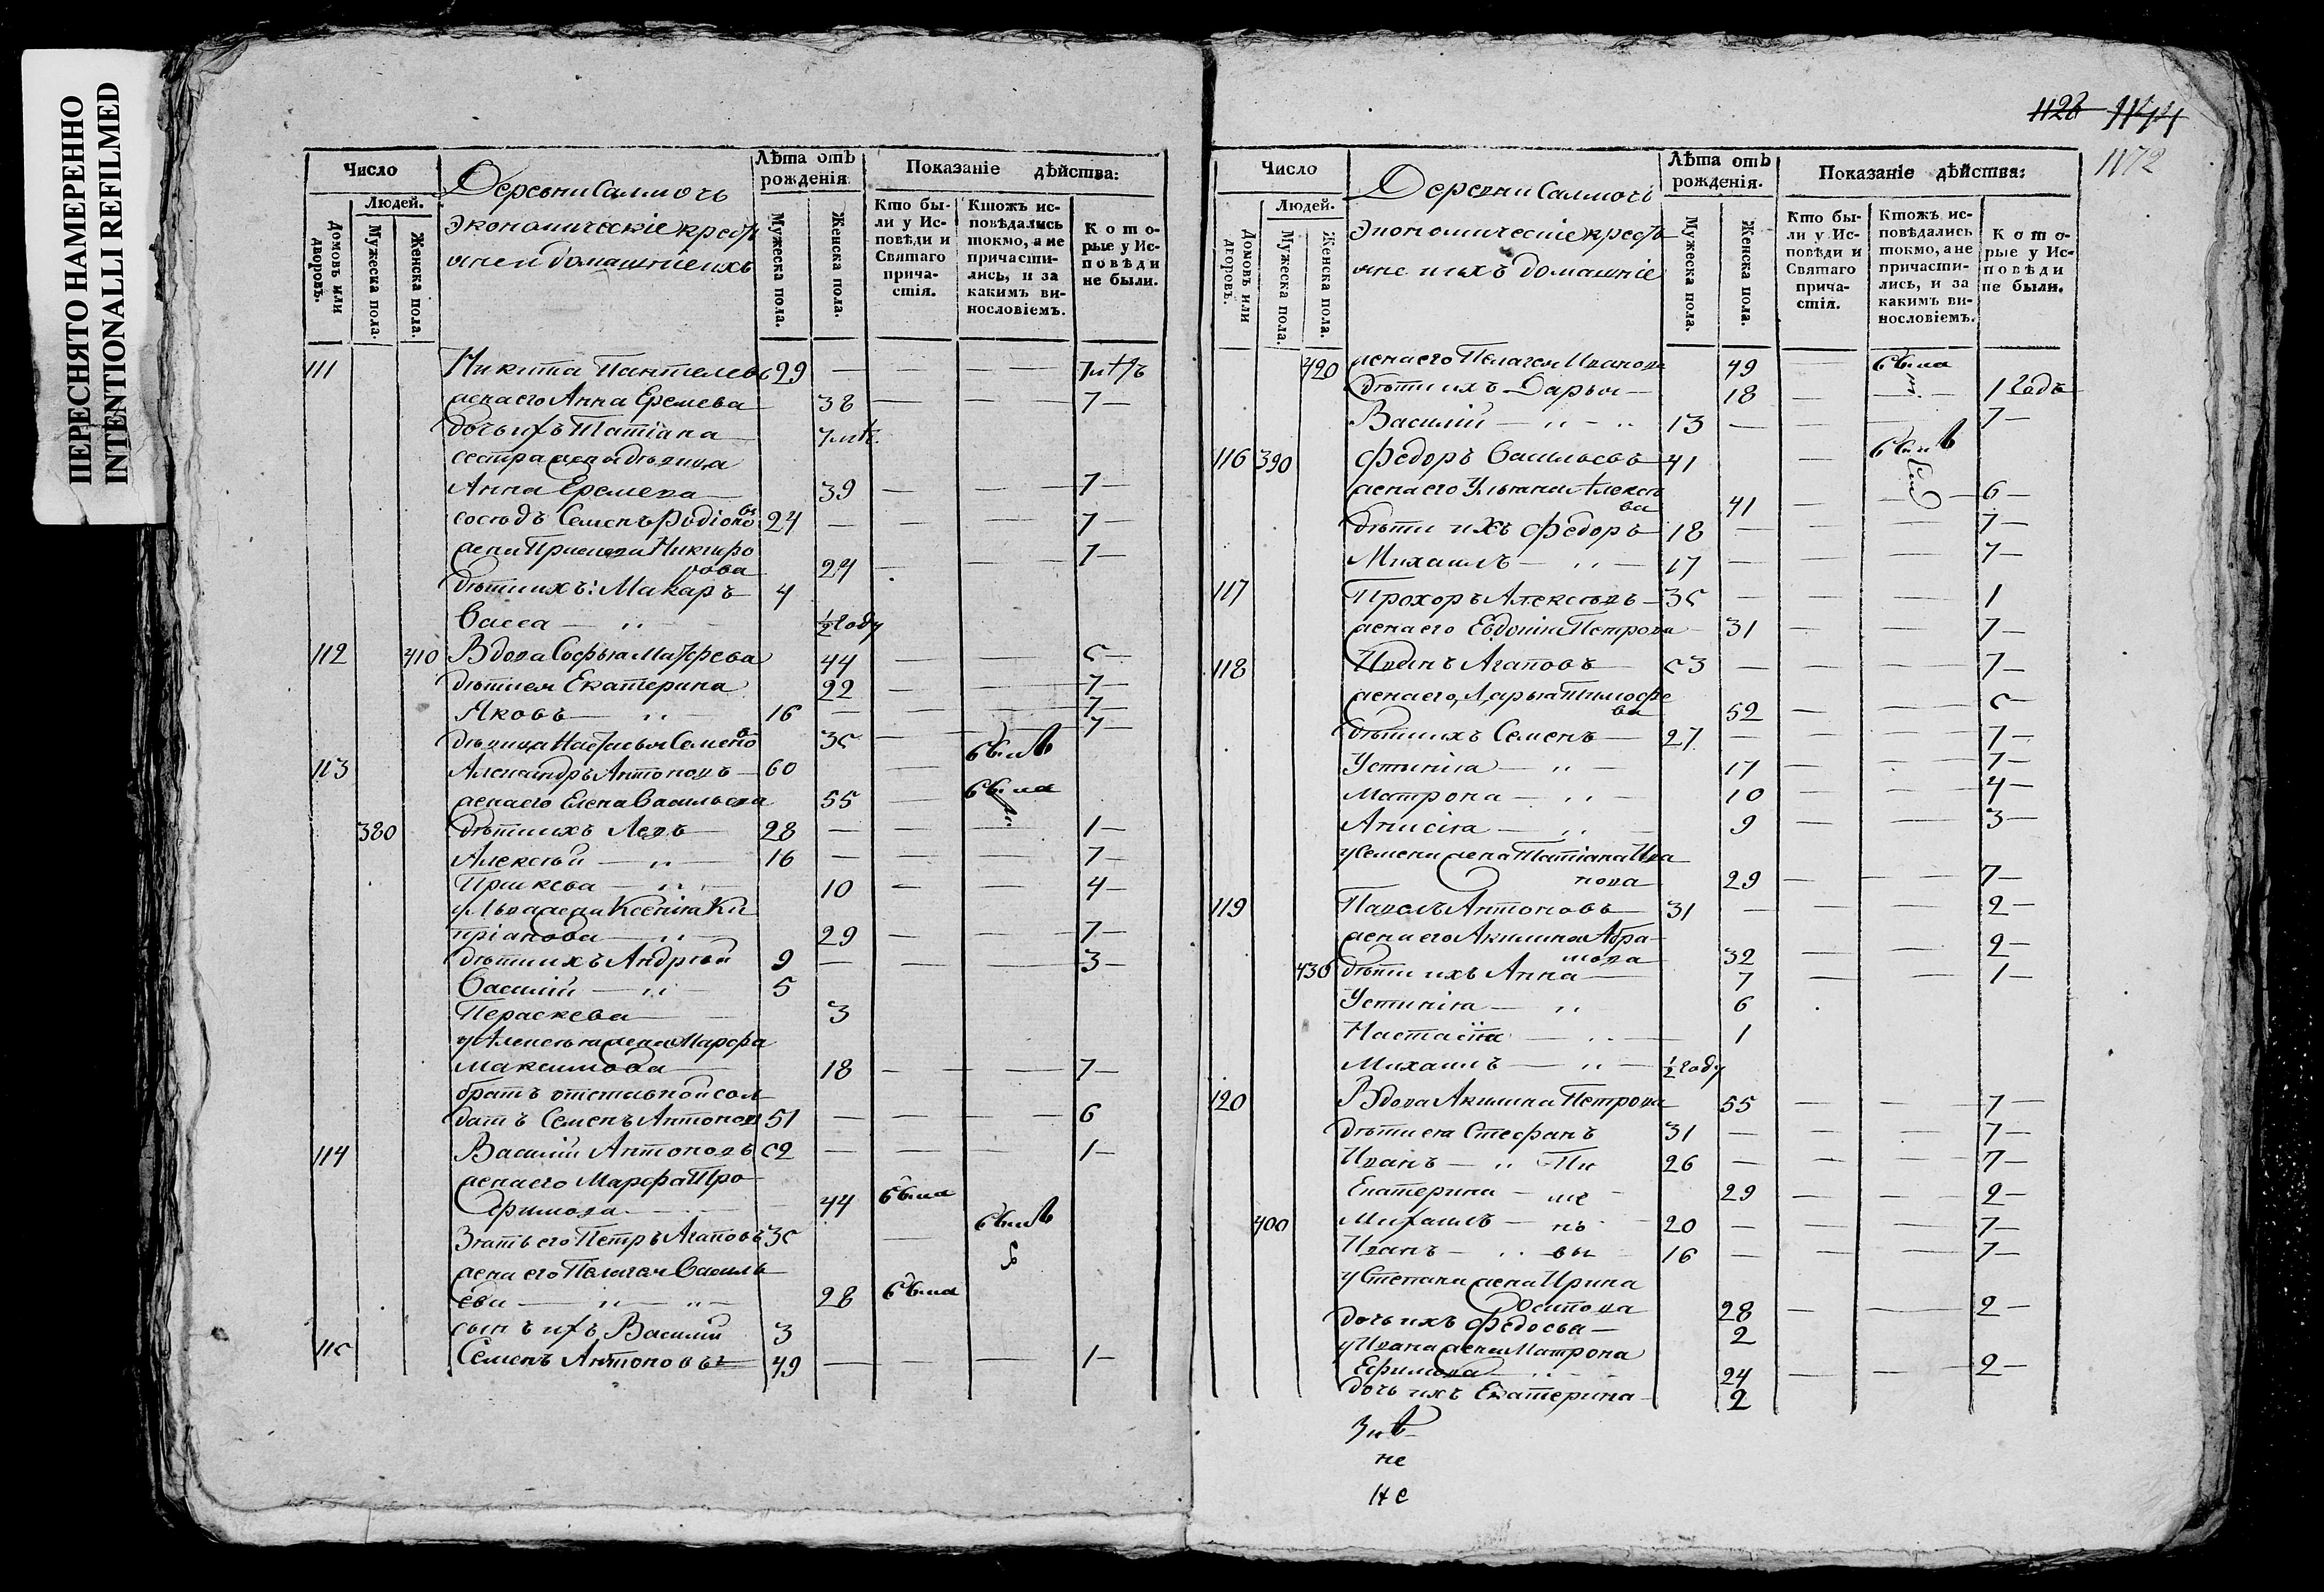 ПЕРЕСНЯТО НАМЕРЕННО
INTENTIONALLI REFILMED
Число
Людей.
Домовъ или дворовъ.
Мужеска пола.
Женска пола.
Деревни Салмочь
экономическіе крестья
не и домашніе ихъ
Лѣта отъ рожденія
Мужеска пола.
Женска пола.
Показаніе дѣйства:
Кто были у Исповѣди и Святаго причастія.
Ктожъ исповѣдались токмо, а не причастились, и за какимъ винословіемъ.
Которые у Исповѣди не были.
111 Никита Пантелеевъ 29 — — — 7 лѣтъ
жена его Анна Еремева 38 — — 7 —
дочь ихъ Татіана 7 лѣтъ
сестра жены девица
Анна Еремева 39 — — 7 —
соседъ Семенъ Родіоновъ 24 — — — 7 —
жена
рова 24 — — 7 —
дѣти ихъ: Макаръ 4
Васса — ,, — ½ году
112 410 Вдова Софья Матфева 44 — — 5 —
дѣти ея Екатерина 22 — — 7 —
Яковъ — ,, — 16 — — — 7 —
девица Настасья Семенова 35 — — 7 —
113 Александръ Антоновъ — 60 — былъ
жена его Елена Васильева 55 — была
380 дѣти ихъ Левъ — 28 — — — 1 —
Алексѣй — ,, — 16 — — — 7 —
Праскева — ,, — 10 — — 4 —
у Льва жена Ксенія Ки
пріанова — ,, — 29 — — 7 —
дѣти ихъ Андрей 9 — — — 3 —
Василій — ,, — 5
Параскева 3
у Алексѣя жена Марфа
Максимова 18 — — 7 —
братъ отставной сол
датъ Семенъ Антоновъ 51 — — — 6
114 Василій Антоновъ 52 — — — 1 —
жена его Марфа Тро
фимова 44 была
Зять его Петръ Агаповъ 35 — былъ
жена его Пелагея Василь
ева — ,, — ,, — 28 была
сынъ ихъ Василій 3
115 Семенъ Антоновъ 49 — — — 1 —
1128 1144
1172
Число
Людей.
Домовъ или дворовъ.
Мужеска пола.
Женска пола.
Деревни Салмочь
экономическіе крестья
не и ихъ домашніе
Лѣта отъ рожденія.
Мужеска пола.
Женска пола.
Показаніе дѣйства:
Кто были у Исповѣди и Святаго причастія.
Ктожъ исповѣдались токмо, а не причастились, и за какимъ винословіемъ.
Которые у Исповѣди не были.
420 жена его Пелагея Иванова 49 — была
дѣти ихъ Дарья — 18 — — 1 годъ
Василій — ,, — ,, 13 — — — 7 —
116 390 Федоръ Васильевъ 41 — былъ
жена его Ульяна Алексѣ
ва 41 — — 6 —
дѣти ихъ Федоръ 18 — — — 7 —
Михаилъ — ,, — 17 — — — 7 —
117 Прохоръ Алексѣевъ — 35 — — — 1
жена его Евдокія Петрова 31 — — 7 —
118 Иванъ Агаповъ 53 — — — 7 —
жена его Дарья Тимофе
ва 52 — — 5 —
дѣти ихъ Семенъ — 27 — — — 7 —
Устинія — ,, — 17 — — 7 —
Матрона — ,, — 10 — — 4 —
Анисія — ,, — 9 — — 3 —
у Семена жена Татіана Ива
нова 29 — — 7 —
119 Павелъ Антоновъ 31 — — — 2 —
жена его Акилина Абра
мова 32 — — 2 —
430 дѣти ихъ Анна 7 — — 1 —
Устинія — ,, 6
Настасія — ,, — 1
Михаилъ — ,, — ½ году
120 Вдова Акилина Петрова 55 — — 7 —
дѣти ея Стефанъ 31 — — — 7 —
Иванъ — ,, 26 — — — 7 —
Екатерина — 29 — — 2 —
400 Михаилъ — 20 — — — 7 —
Иванъ — ,, 16 — — — 7 —
у Степана жена Ирина
Осипова 28 — — 2 —
дочь ихъ Федосья — 2
у Ивана жена Матрона
Ефимова — ,, — 24 — — 2 —
дочь ихъ Екатерина 2
не
не